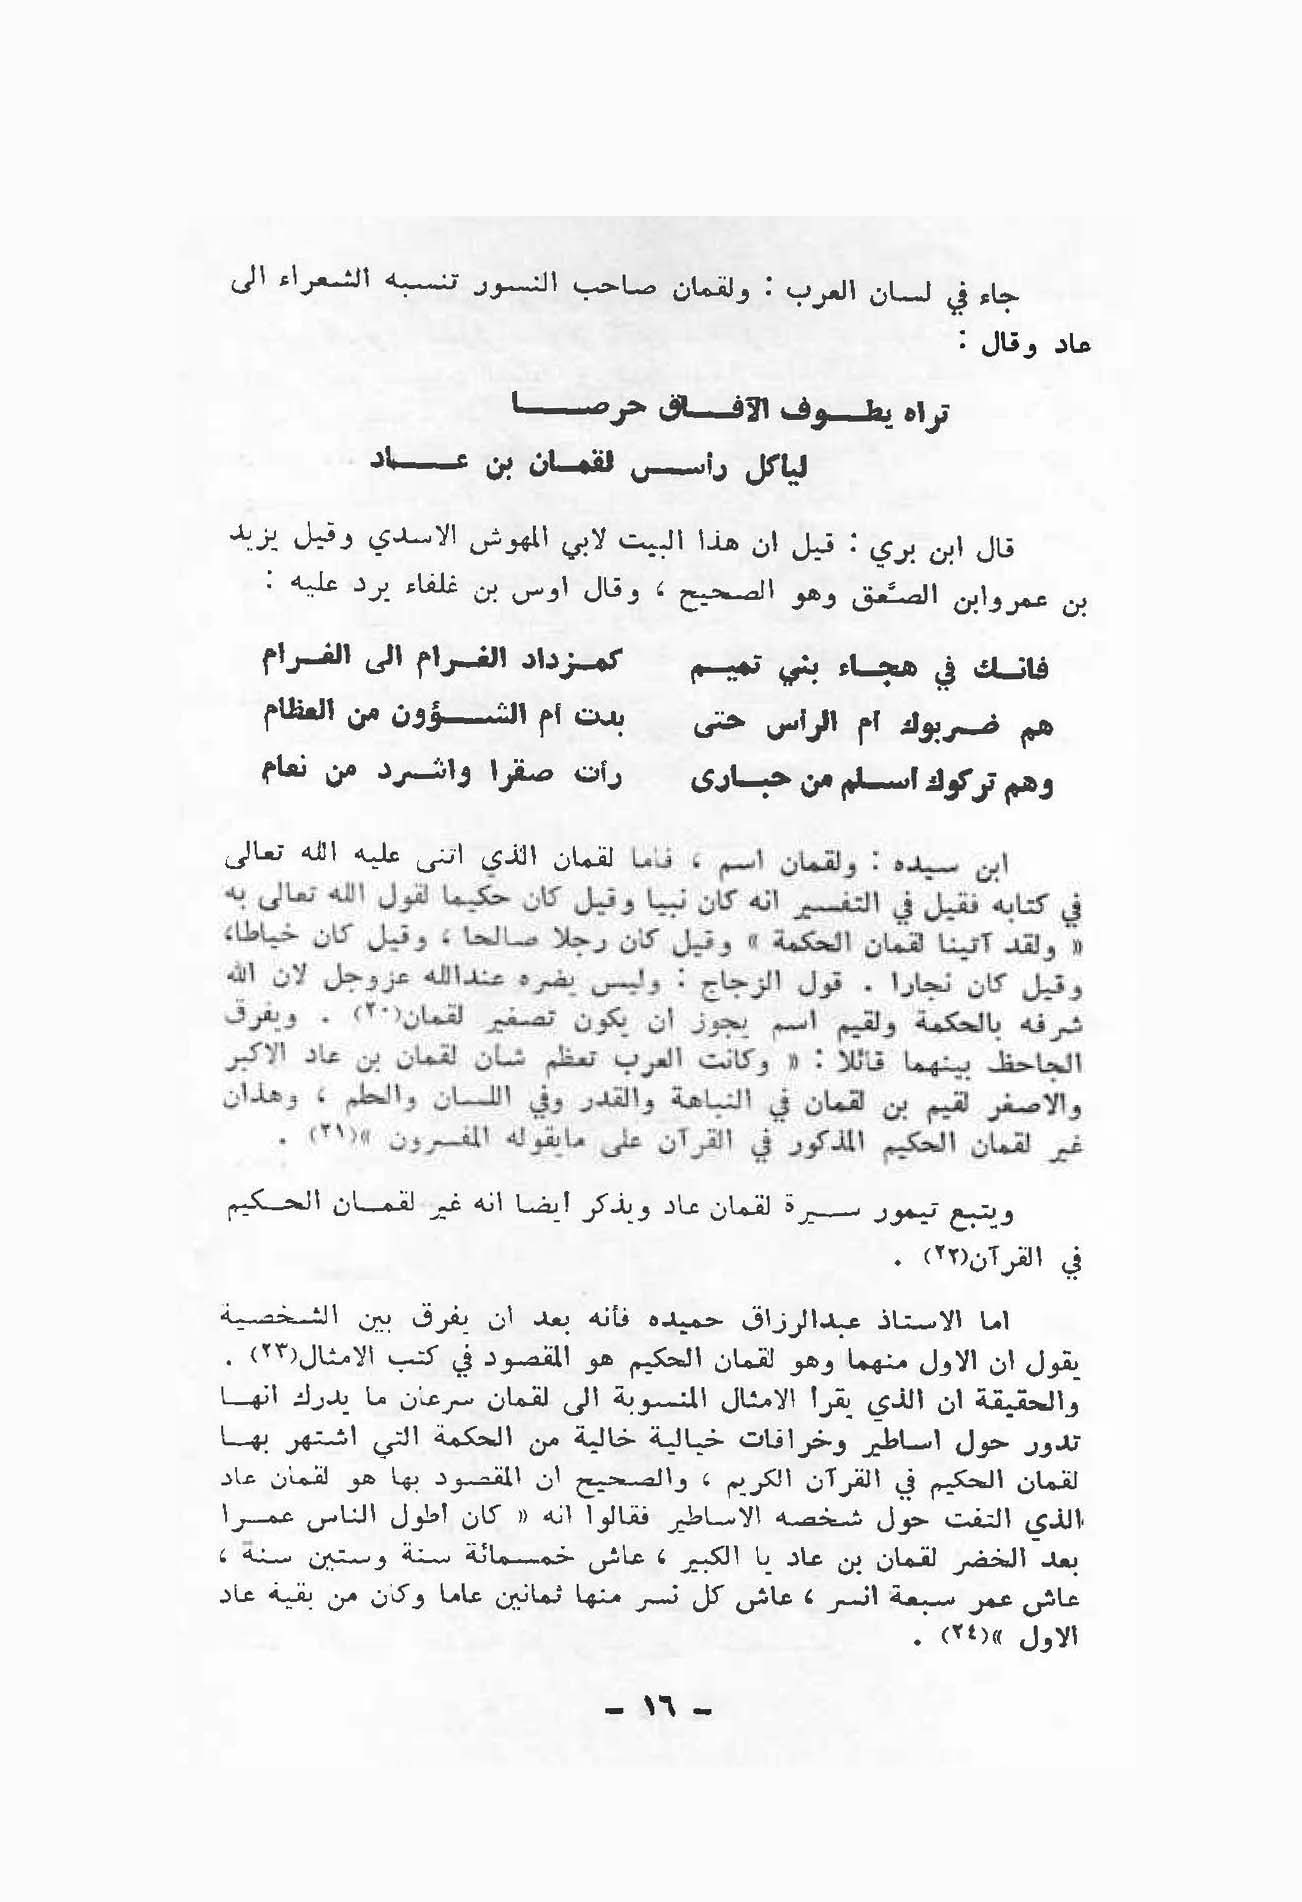 جاء في لسان العرب : ولقمان صاحب النسور تنسبه الشعراء الى
عاد وقال :
تراه يطوف الآفاق حرصا
ليأكل رأس لقمان بن عاد
قال ابن بري : قيل ان هذا البيت لابي المهوش الاسدي وقيل يزيد
بن عمروابن الصَّعق وهو الصحيح ، وقال اوس بن غلفاء يرد عليه :
فانك في هجاء بني تميم كمزداد الغرام الى الغرام
هم ضربوك أم الرأس حتى بدت أم الشؤون من العظام
وهم تركوك أسلم من حبارى رأت صقرا واشرد من نعام
ابن سيده : ولقمان اسم ، فاما لقمان الذي اثنى عليه الله تعالى
في كتابه فقيل في التفسير انه كان نبيا وقيل كان حكيما لقول الله تعالى به
« ولقد آتينا لقمان الحكمة » وقيل كان رجلا صالحا ، وقيل كان خياطا،
وقيل كان نجارا . قول الزجاج : وليس يضره عندالله عزوجل لان الله
شرفه بالحكمة ولقيم اسم يجوز ان يكون تصغير لقمان(٢٠) . ويفرق
الجاحظ بينهما قائلا : « وكانت العرب تعظم شان لقمان بن عاد الاكبر
والاصغر لقيم بن لقمان في النباهة والقدر وفي اللسان والحلم ، وهذان
غير لقمان الحكيم المذكور في القرآن على مايقوله المفسرون »(٢١) .
ويتبع تيمور سيرة لقمان عاد ويذكر أيضا انه غير لقمان الحكيم
في القرآن(٢٢) .
اما الاستاذ عبدالرزاق حميده فأنه بعد ان يفرق بين الشخصية
يقول ان الاول منهما وهو لقمان الحكيم هو المقصود في كتب الامثال(٢٣) .
والحقيقة ان الذي يقرأ الامثال المنسوبة الى لقمان سرعان ما يدرك انها
تدور حول اساطير وخرافات خيالية خالية من الحكمة التي اشتهر بها
لقمان الحكيم في القرآن الكريم ، والصحيح ان المقصود بها هو لقمان عاد
الذي التفت حول شخصه الاساطير فقالوا انه « كان أطول الناس عمرا
بعد الخضر لقمان بن عاد يا الكبير ، عاش خمسمائة سنة وستين سنة ،
عاش عمر سبعة انسر ، عاش كل نسر منها ثمانين عاما وكان من بقية عاد
الاول »(٢٤) .
- ١٦ -